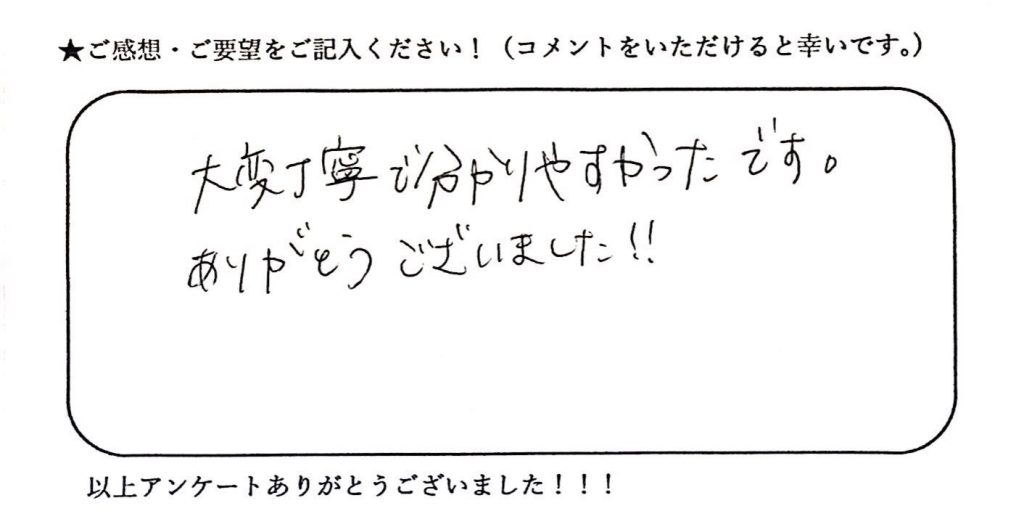 ★ご感想・ご要望をご記入ください！（コメントをいただけると幸いです。）
大変丁寧で分かりやすかったです。
ありがとうございました!!
以上アンケートありがとうございました！！！